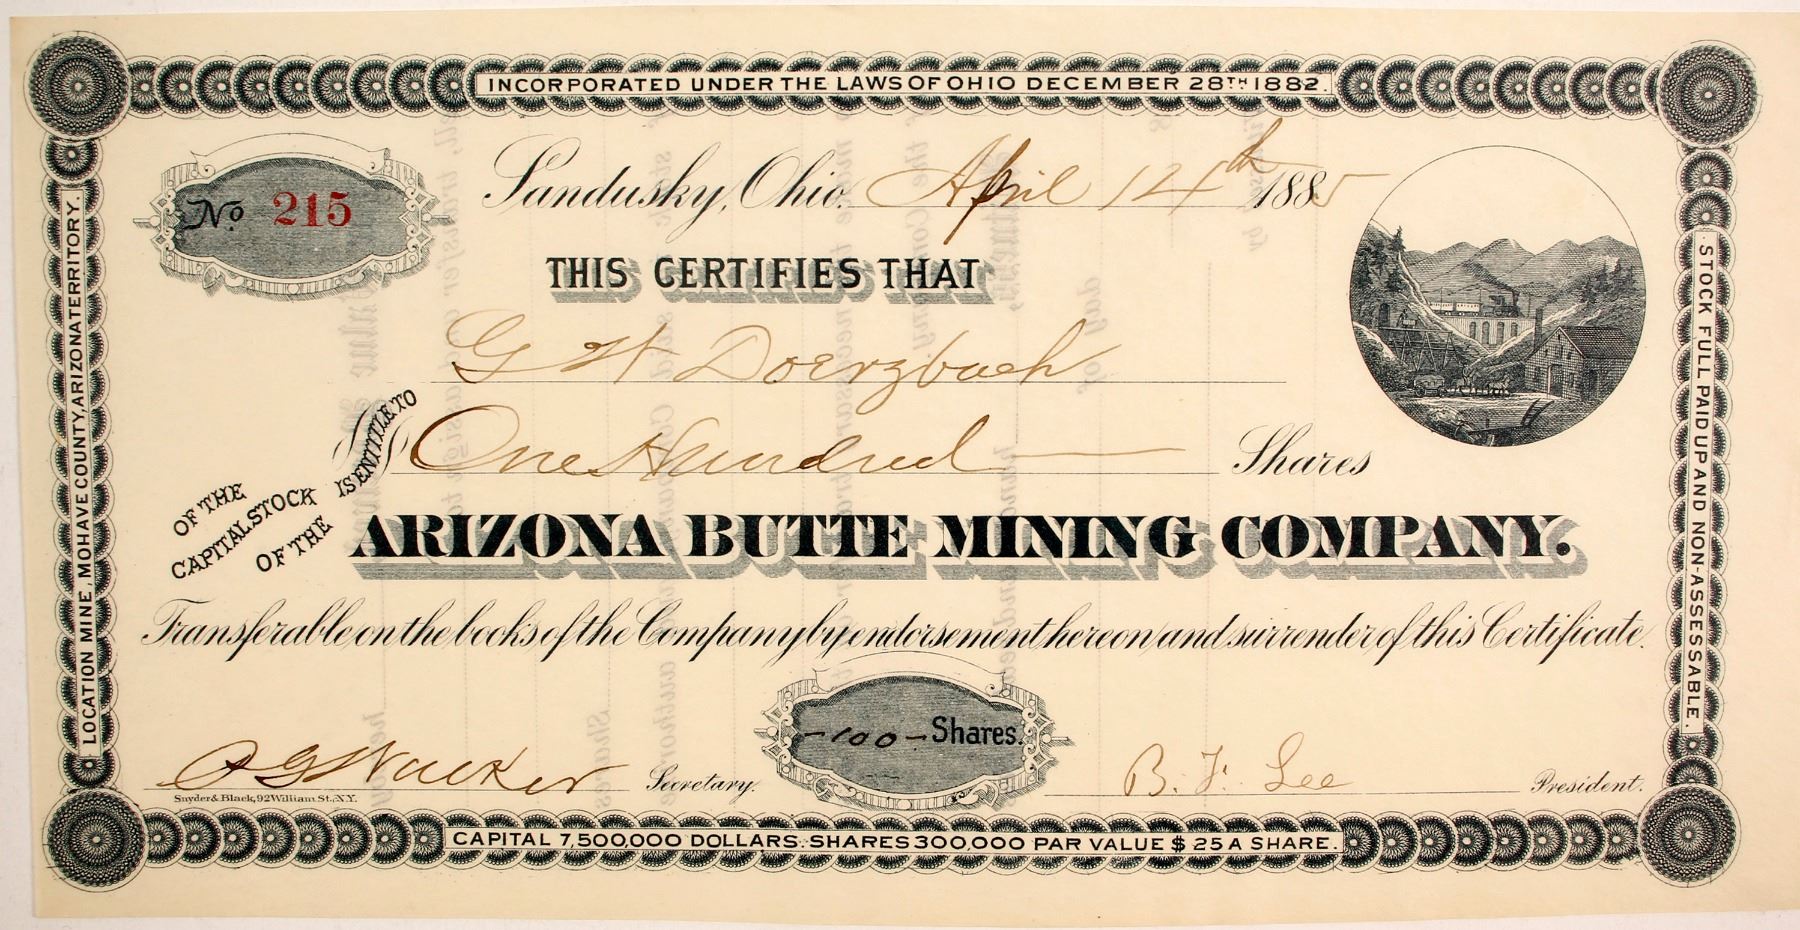 INCORPORATED UNDER THE LAWS OF OHIO DECEMBER 28TH 1882.
No. 215
Sandusky, Ohio. April 14th 1885
THIS CERTIFIES THAT
G W Doerzbach
IS ENTITLE TO
One Hundred Shares
OF THE
CAPITAL STOCK
OF THE
ARIZONA BUTTE MINING COMPANY.
Transferable on the books of the Company by endorsement hereon and surrender of this Certificate.
-100- Shares.
Wacker Secretary.
B. F. Lee President.
Snyder & Black, 92 William St. N.Y.
CAPITAL 7,500,000 DOLLARS. SHARES 300,000 PAR VALUE $25 A SHARE.
LOCATION MINE, MOHAVE COUNTY, ARIZONA TERRITORY.
STOCK FULL PAID UP AND NON-ASSESSABLE.